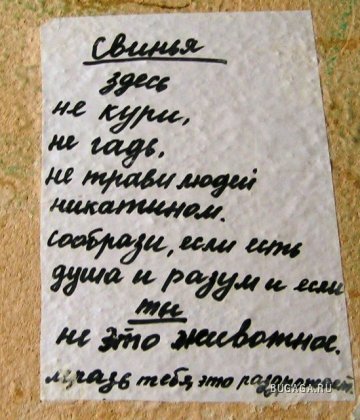 свинья
здесь
не кури,
не гадь,
не трави людей
никатином.
сообрази, если есть
душа и разум и если
ты
не это животное.
тебя, это
BUGAGA.RU